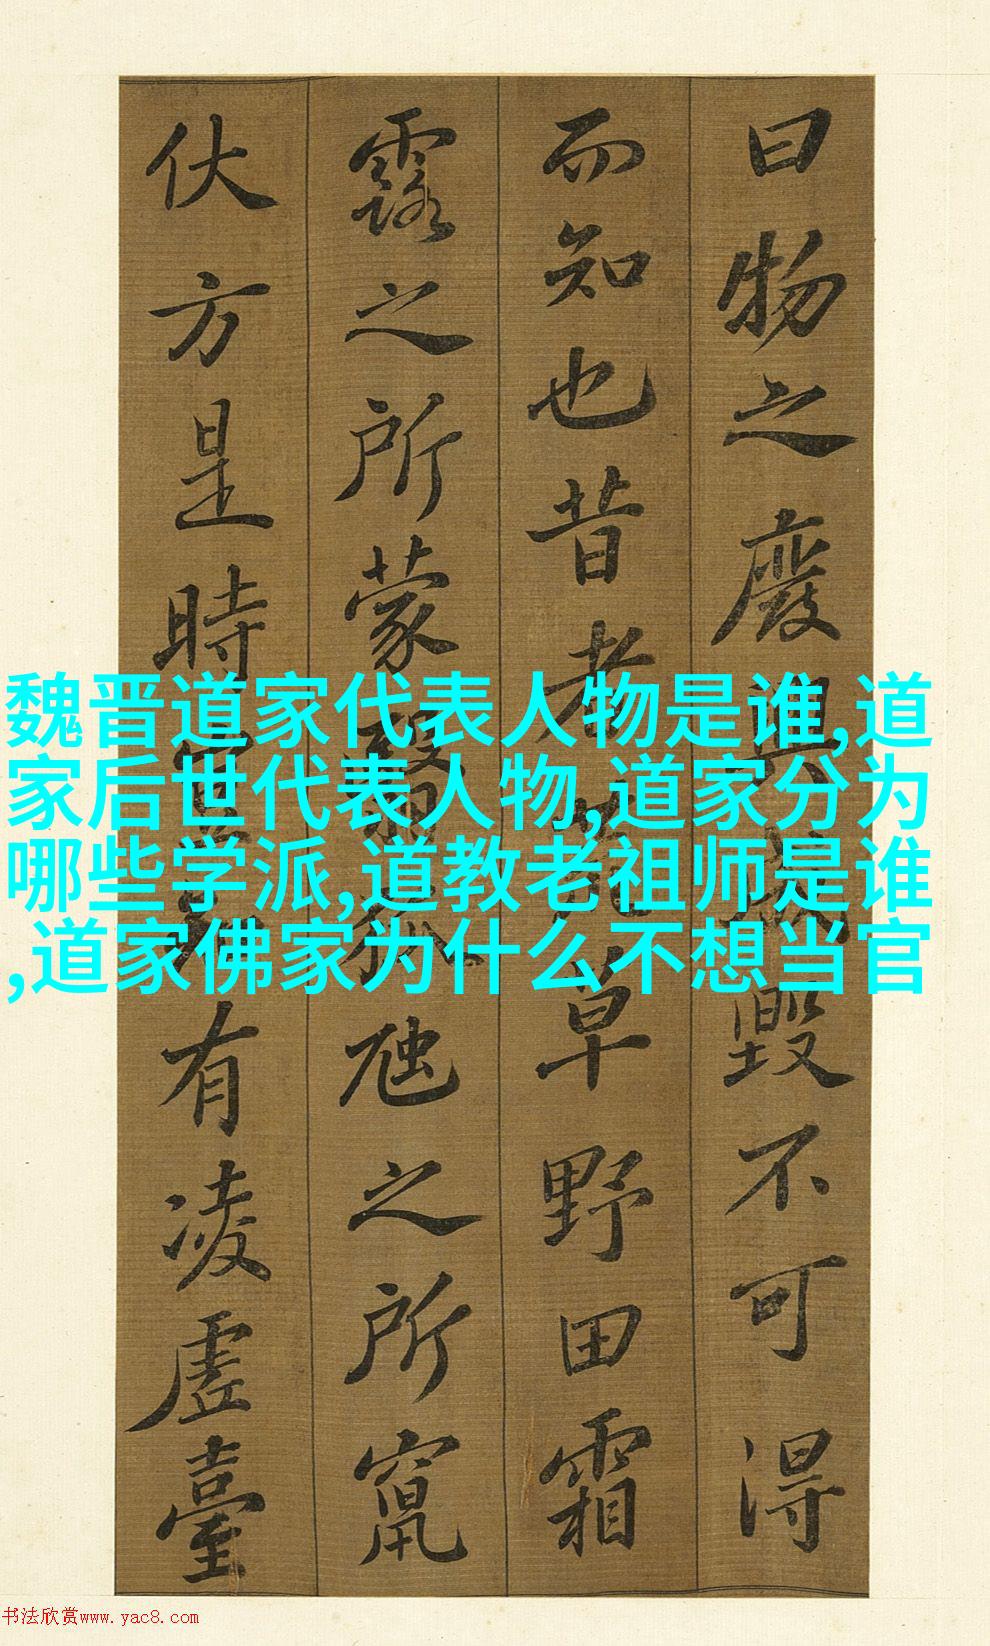 曰物之廢興成毀不可得
而知也昔者荒草野田霜
露之所蒙翳狐虺之所竄
伏方是時豈知有凌虛臺
魏晋道家代表人物是谁,道
家后世代表人物,道家分为
哪些学派,道教老祖师是谁
,道家佛家为什么不想当官
书法欣赏www.yac8.com